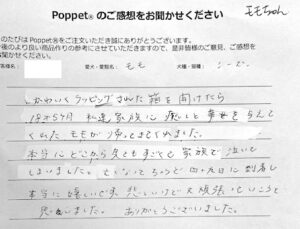 モモちゃん
Poppet® のご感想をお聞かせください
のたびはPoppet®をご注文いただき誠にありがとうございます。
後のより良い商品作りの参考にさせていただきますので、是非皆様のご意見、ご感想を
お聞かせください。
客様名: 愛犬・愛猫名: モモ 犬種・猫種: シーズー
しかわいくラッピングされた箱を開けたら
18才5ヶ月 私達家族に癒しと幸せを与えて
くれた モモが 帰ってきてくれました。
本当にどこから見てもモモで 家族で 泣いて
しまいました。 ちょうど四十九日に到着し
本当に嬉しいです。 悲しいけど 頑張っていこうと
思いました。 ありがとうございました。